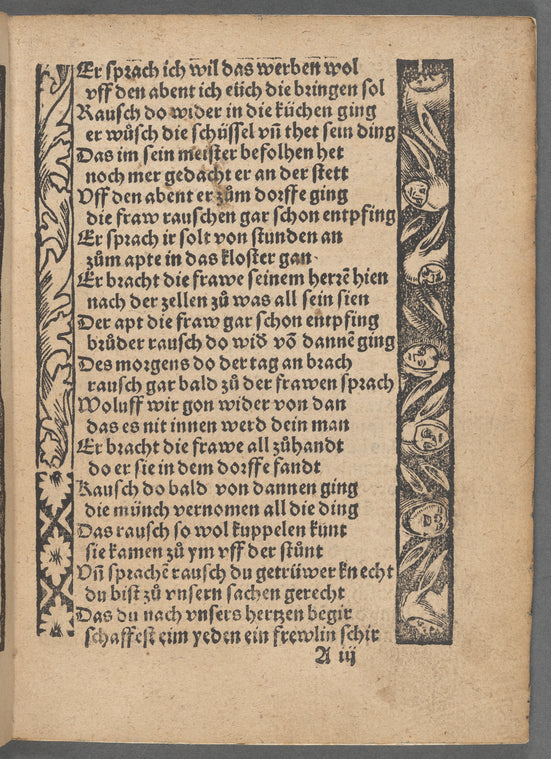 Er sprach ich wil das werben wol
vff den abent ich eüch die bringen sol
Rausch do wider in die küchen ging
er wůsch die schüssel vñ thet sein ding
Das im sein meister befolhen het
noch mer gedacht er an der stett
Uff den abent er zům dorffe ging
die fraw rauschen gar schon entpfing
Er sprach ir solt von stunden an
zům apte in das kloster gan·
Er bracht die frawe seinem herzē hien
nach der zellen zů was all sein sien
Der apt die fraw gar schon entpfing
brůder rausch do wid̄ vō dannē ging
Des morgens do der tag an brach
rausch gar bald zů der frawen sprach
Woluff wir gon wider von dan
das es nit innen werd dein man
Er bracht die frawe all zůhandt
do er sie in dem dorffe fandt
Rausch do bald von dannen ging
die münch vernomen all die ding
Das rausch so wol kuppelen kunt
sie kamen zů ym vff der stůnt
Vñ sprachē rausch du getrüwer knecht
du bist zů vnsern sachen gerecht
Das du nach vnsers hertzen begir
schaffest eim yeden ein frewlin schir
A iij